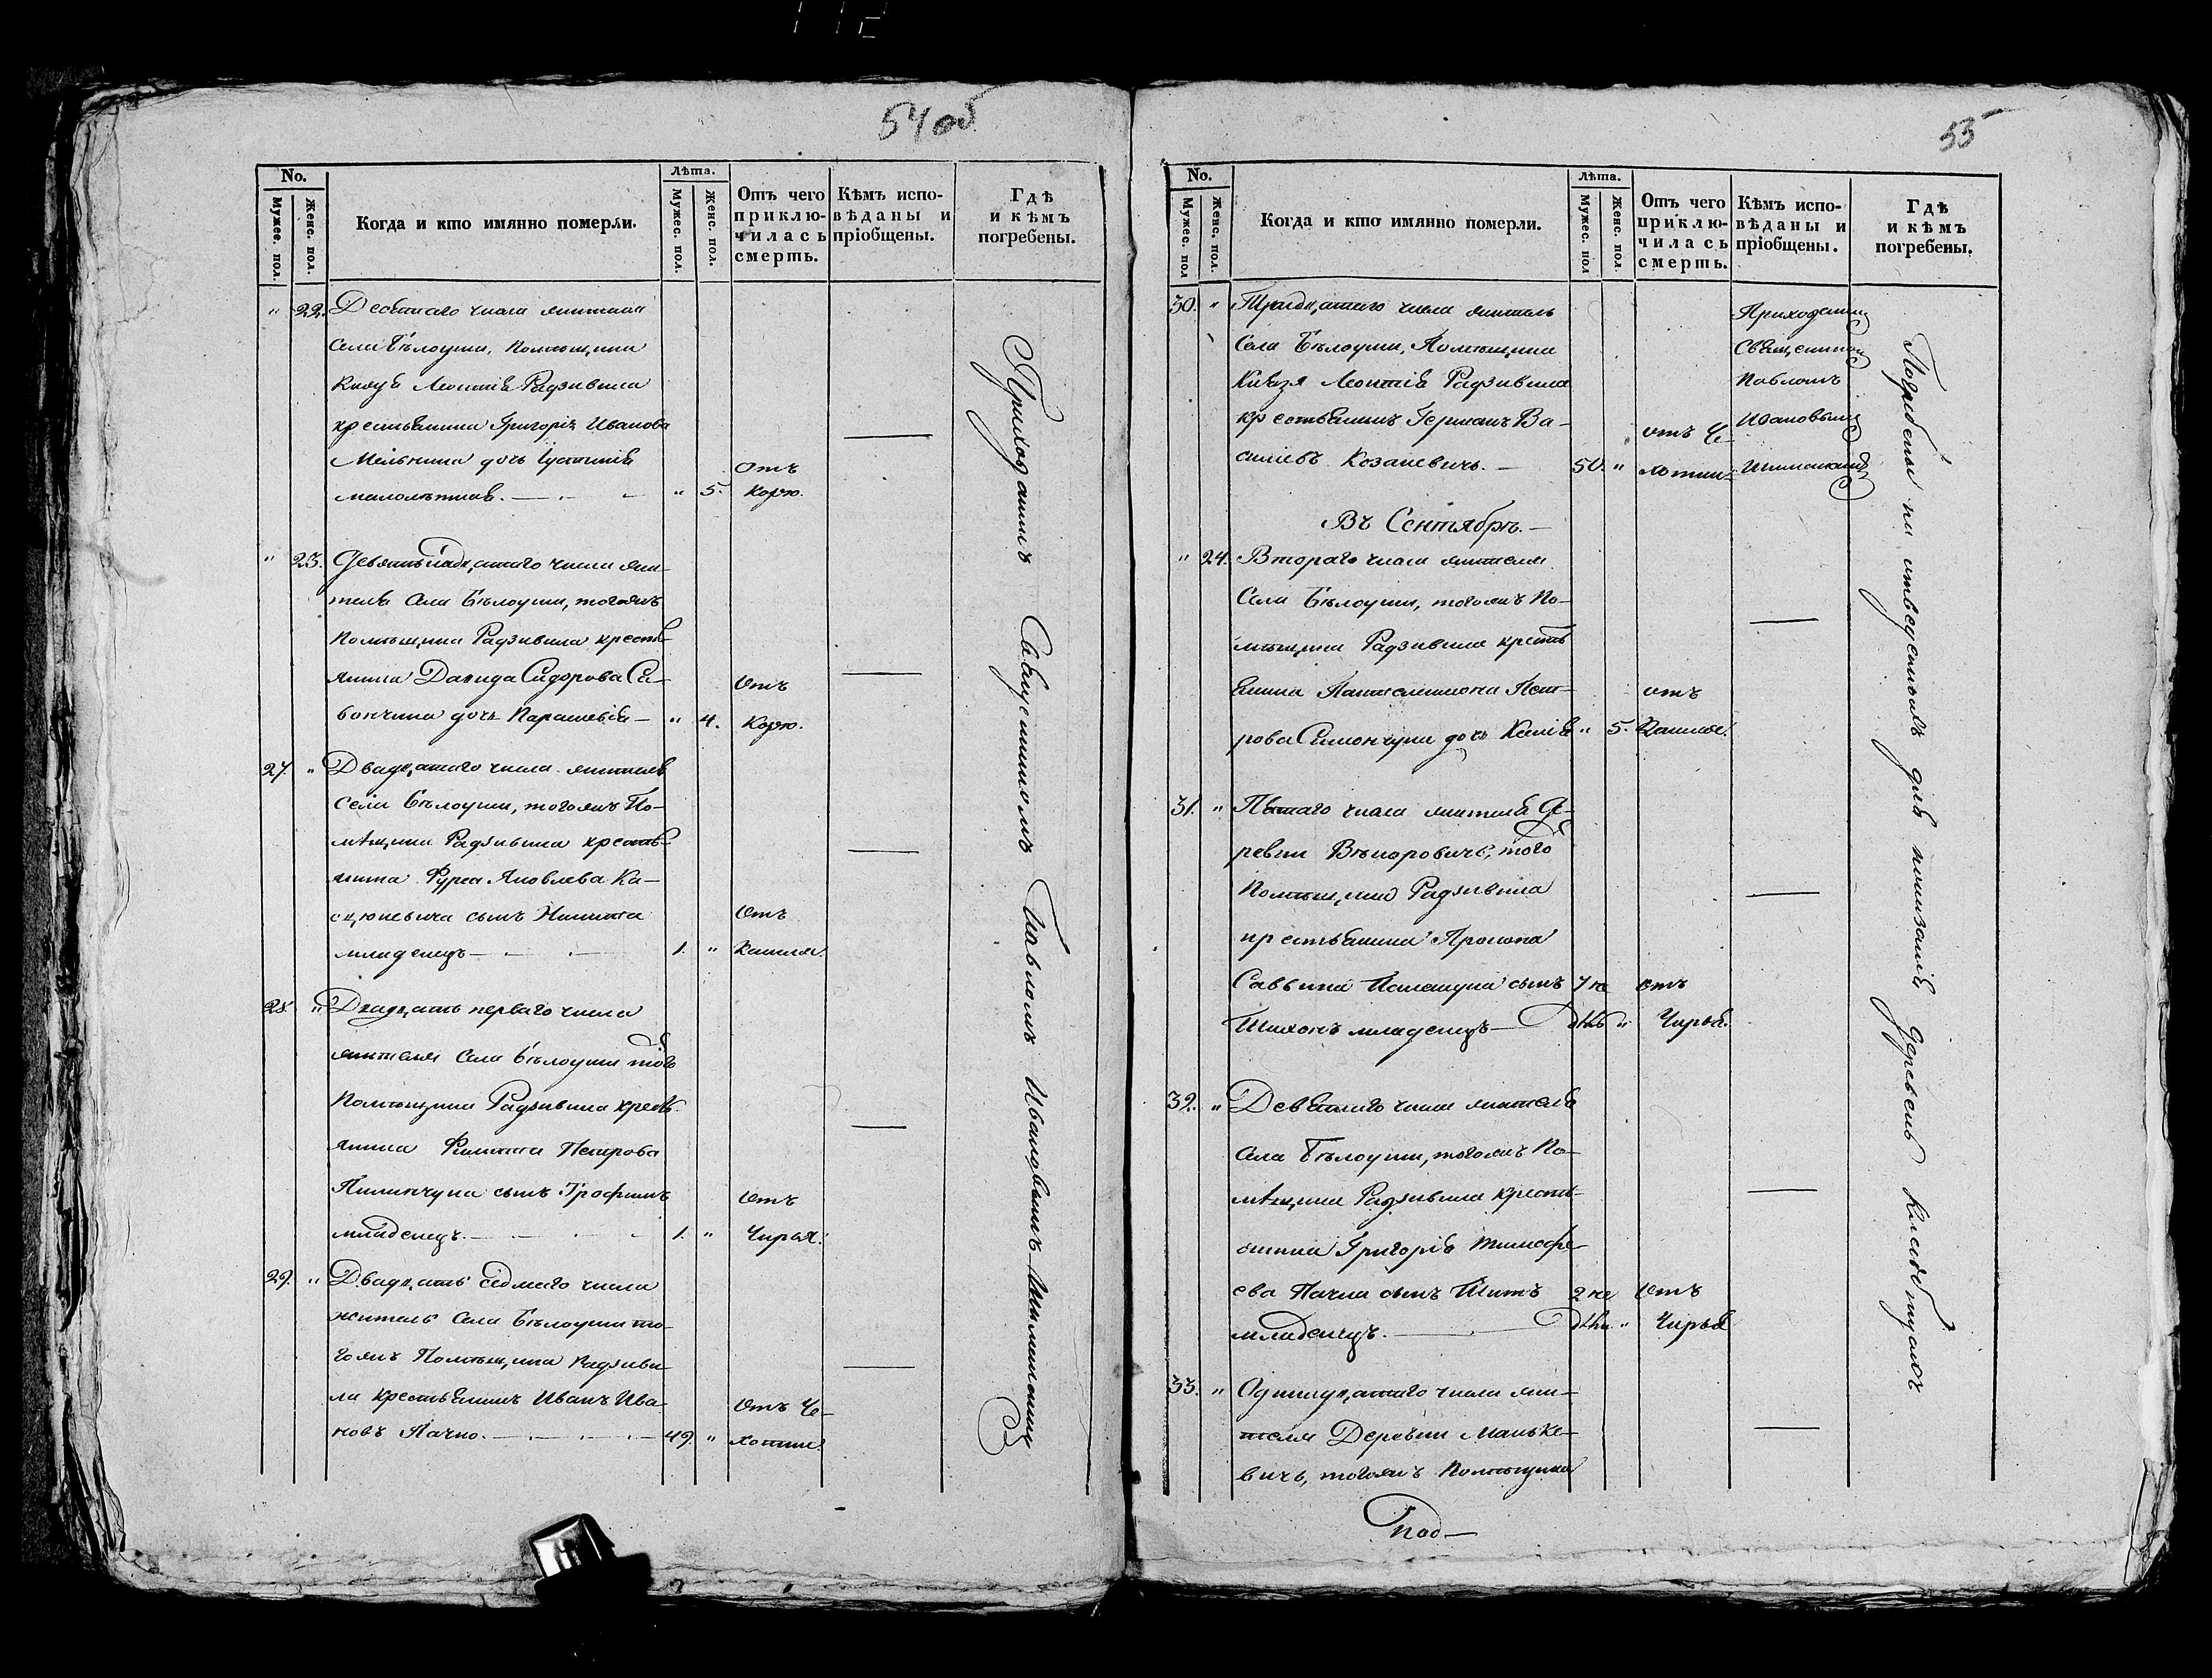 54 об
No.
Мужес. пол.
Женс. пол.
Когда и кто имянно померли.
Лѣта.
Мужес. пол.
Женс. пол.
Отъ чего приклю-чилась смерть.
Кѣмъ испо-вѣданы и пріобщены.
Гдѣ и кѣмъ погребены.
" 22. Десятаго числа жителя
Села Бѣлоуши, Помѣщика
Князя Леонтія Радзивила
крестьянина Григорія Иванова
Мельника дочь Іустинія
малолѣтняя. " 5. Отъ Корю.
" 23. Девятьнадцатаго числа жи-
теля Села Бѣлоуши, тогожъ
Помѣщика Радзивила кресть-
янина Давида Сидорова Си-
вончика дочь Параскевія — " 4. Отъ Корю.
27. " Двадцатаго числа жителя
Села Бѣлоуши, тогожъ По-
мѣщика Радзивила кресть-
янина Фурса Яковлева Ка-
сцюкевича сынъ Никита
младенецъ — 1. " Отъ Кашля.
28. " Двадцать перваго числа
жителя Села Бѣлоуши того
Помѣщика Радзивила кресть-
янина Филипа Петрова
Пилипчука сынъ Трофимъ
младенецъ. — 1. " Отъ Чирья.
29. " Двадцать седмаго числа
житель Села Бѣлоуши то-
гожъ Помѣщика Радзиви-
ла крестьянинъ Иванъ Ива-
новъ Пачко. — 49. " Отъ Че-
хотки
Приходскимъ Священникомъ Павломъ Ивановымъ
55
No.
Мужес. пол
Женс. пол.
Когда и кто имянно померли.
Лѣта.
Мужес. пол
Женс. пол.
Отъ чего приклю-чилась смерть.
Кѣмъ испо-вѣданы и пріобщены.
Гдѣ и кѣмъ погребены.
30. " Тридцатаго числа житель
Села Бѣлоуши, Помѣщика
Князя Леонтія Радзивила
крестьянинъ Германъ Ва-
силіевъ Козакевичъ. — 50. " отъ Че-
хотки
Приходскимъ
Священникомъ
Павломъ
Ивановымъ
Въ Сентябрѣ. —
" 24. Втораго числа жителя
Села Бѣлоуши, тогожъ По-
мѣщика Радзивила кресть
янина Пантелимона Пет-
рова Симончука дочь Ксенія " 5. отъ Кашля.
31. " Пятаго числа жителя Де-
ревни Вѣкоровичъ, того
Помѣщика Радзивила
крестьянина Прокопа
Саввина сынъ 7 не отъ
Тихонъ младенецъ — дѣль " Чирья.
32. " Девятаго числа жителя
Села Бѣлоуши, тогожъ По-
мѣщика Радзивила кресть-
янина Григорія Тимофе-
ева Пачка сынъ Титъ 2 не Отъ
младенецъ. — дѣли. " Чирья
33. " Одинадцатаго числа жи-
теля Деревни Маньке-
вичь, тогожъ Помѣщика
Погребены на отведенномъ для деревень Кладбищахъ
Рад —